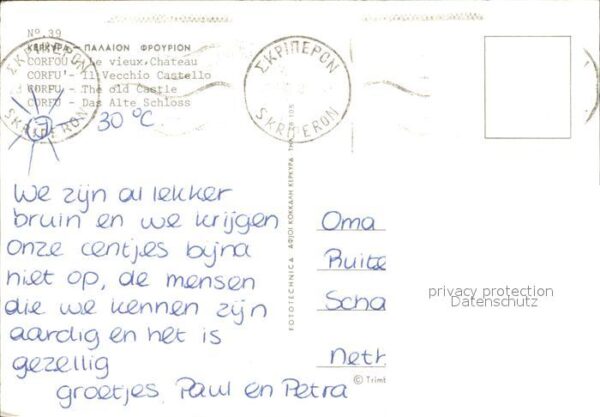 Nº 39
ΚΕΡΚΥΡΑ – ΠΑΛΑΙΟΝ ΦΡΟΥΡΙΟΝ
CORFOU - Le vieux Chateau
CORFU - Il Vecchio Castello
CORFU - The old Castle
CORFU - Das Alte Schloss
ΣΚΡΙΠΕΡΟΝ
SKRIPERON
ΣΚΡΙΠΕΡΟΝ
SKRIPERON
30 °C
We zijn al lekker
bruin en we krijgen
onze centjes bijna
niet op, de mensen
die we kennen zijn
aardig en het is
gezellig
groetjes Paul en Petra
FOTOTECHNICA ΑΦΙΟΙ ΚΟΚΚΑΛΗ ΚΕΡΚΥΡΑ
Oma
Ruite
Scha
Neth
privacy protection
Datenschutz
© Trimt